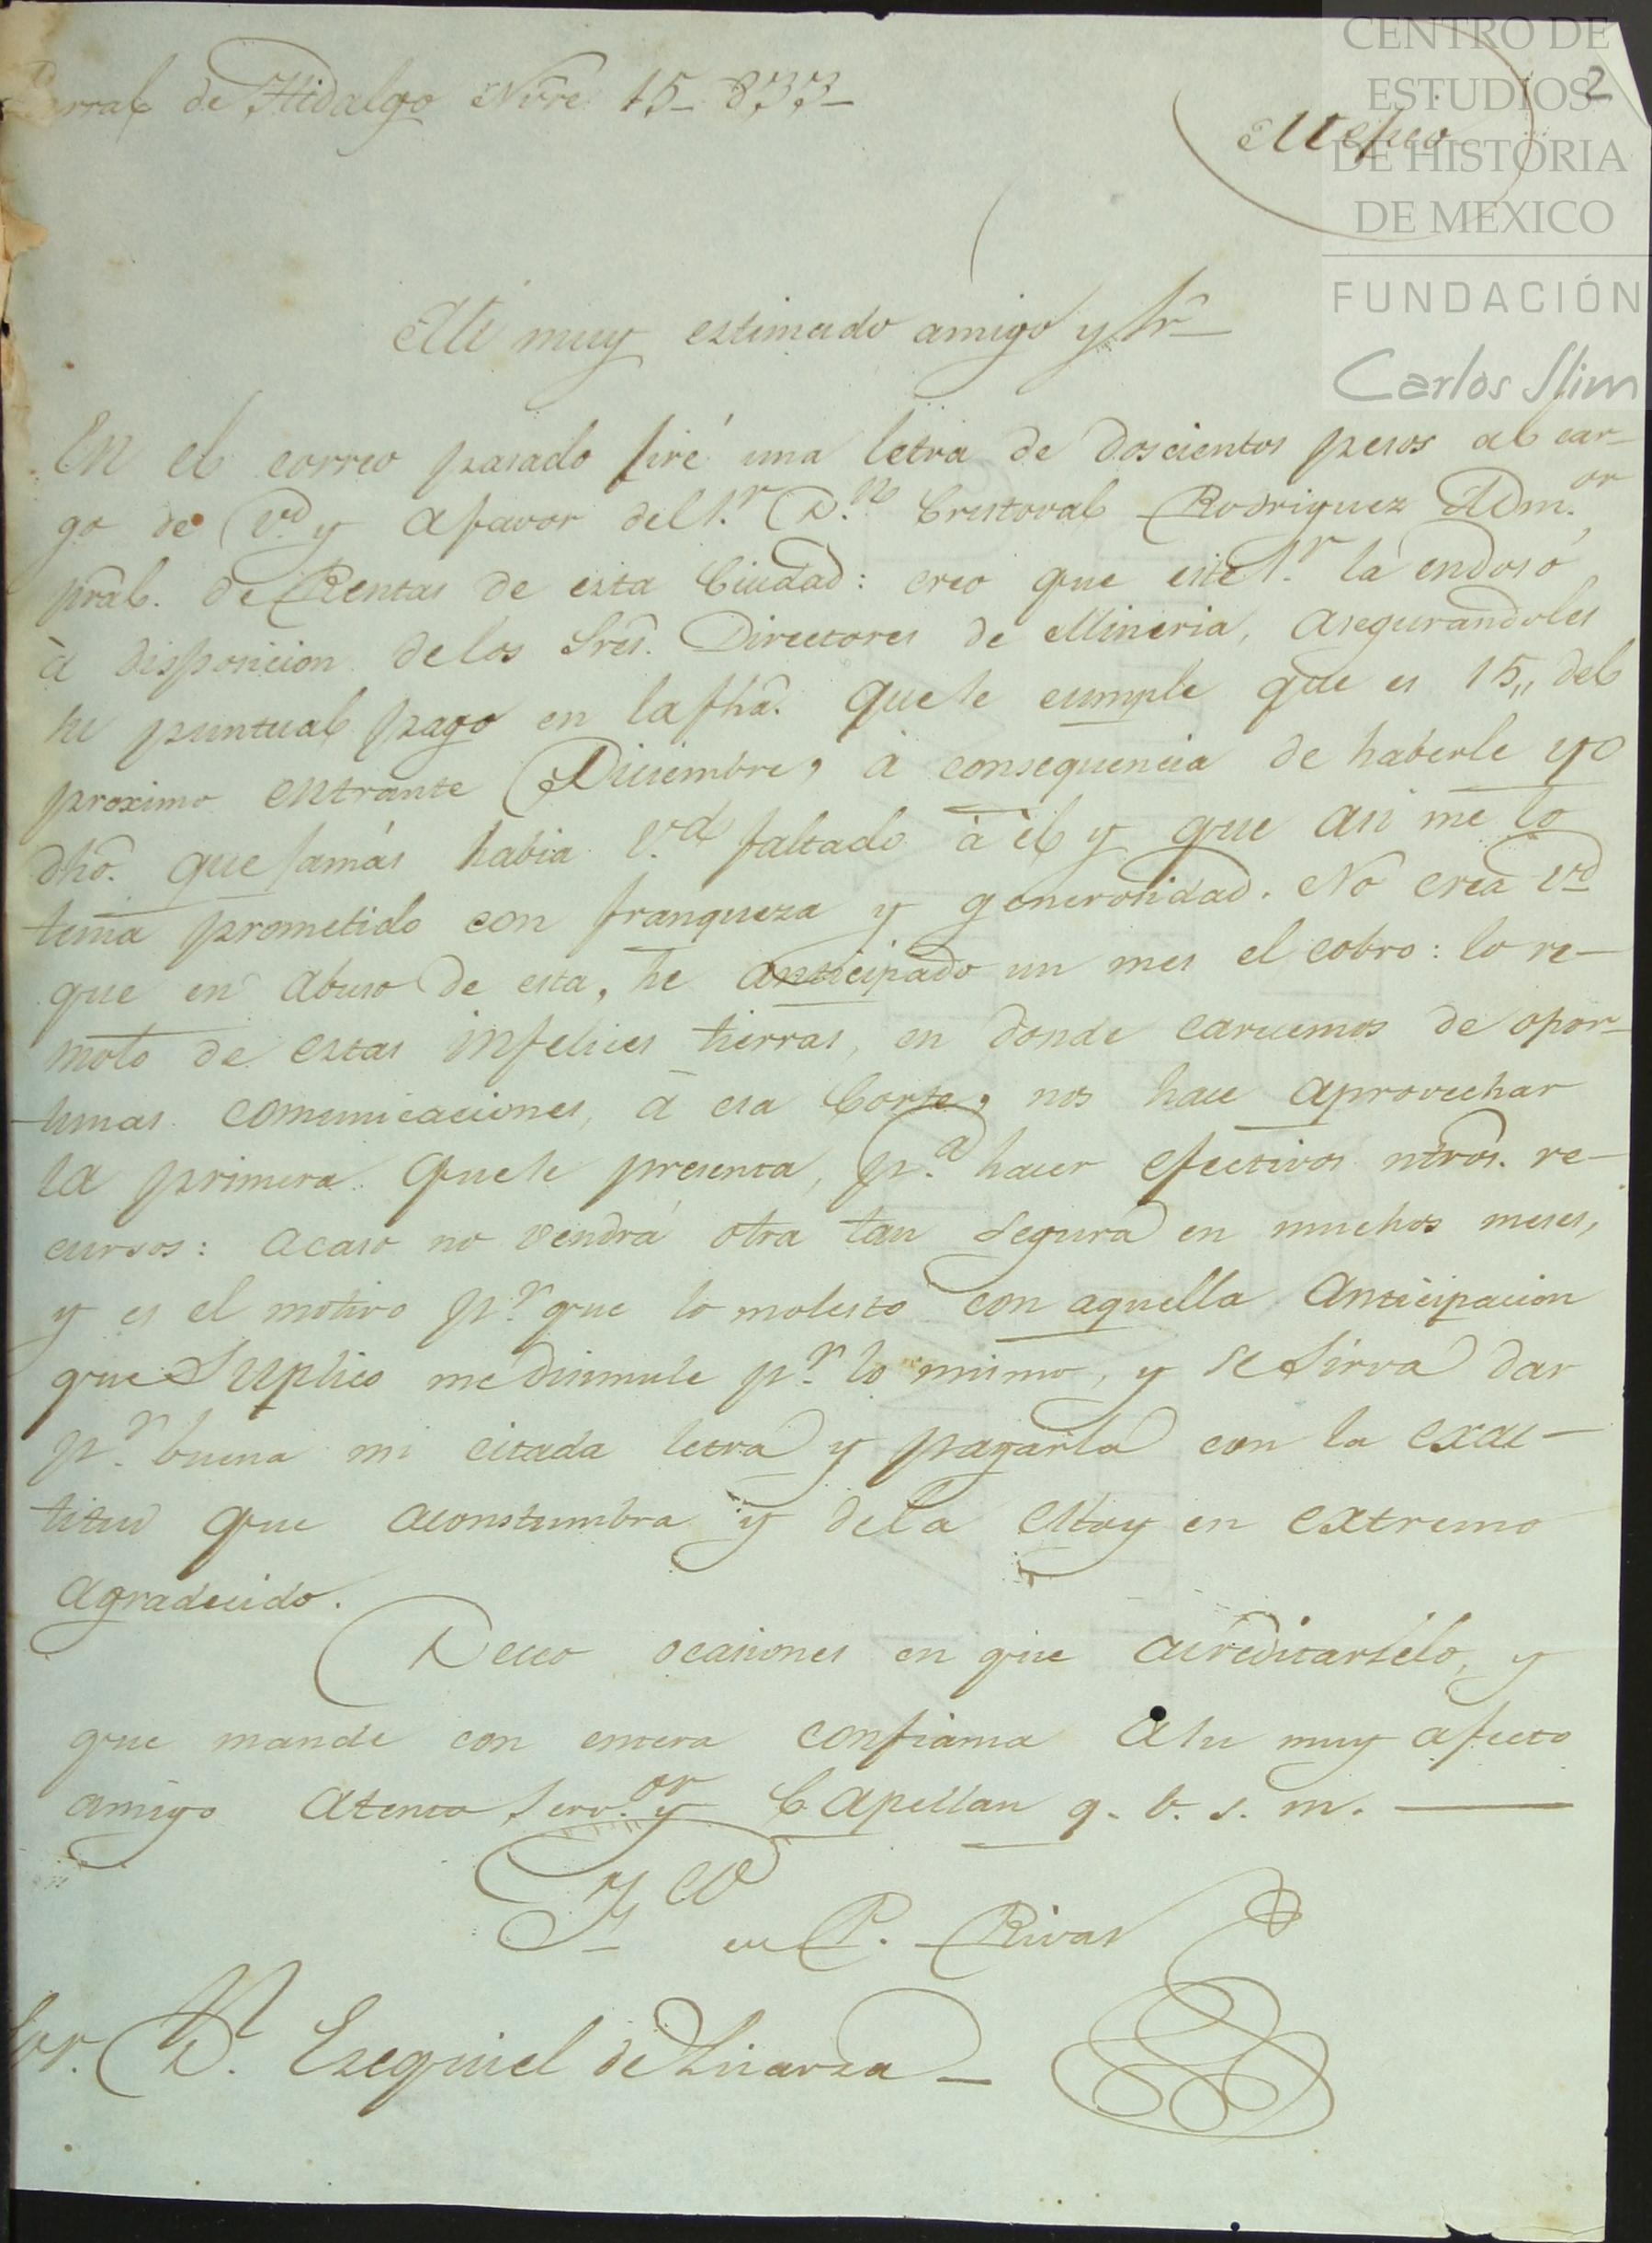 Parral de Hidalgo Nvre 15- 833-
Mejico
2
CENTRO DE
ESTUDIOS
DE HISTORIA
DE MEXICO
FUNDACIÓN
Carlos Slim
Mi muy estimado amigo y Sr
En el correo pasado jiré una letra de doscientos pesos al car-
go de Vd y a favor del S.r D.n Cristoval Rodriguez Adm.or
pral. de Rentas de esta Ciudad: creo que este S.r la endosó
à disposicion de los Sres. Directores de Mineria, asegurandoles
su puntual pago en la fha. que se cumple que es 15,, del
proximo entrante Diciembre, à consequencia de haberle yo
dho. que jamás habia V.d faltado à èl y que asi me lo
tenia prometido con franqueza y generosidad. No crea Vd
que en abuso de esta, he anticipado un mes el cobro: lo re-
moto de estas infelices tierras, en donde carecemos de opor-
tunas comunicaciones, à esa Corte, nos hace aprovechar
la primera que se presenta, p.a hacer efectivos ntros. re-
cursos: acaso no vendrá otra tan segura en muchos meses,
y es el motivo p.r que lo molesto con aquella anticipacion
que suplico me disimule p.r lo mismo, y se sirva dar
p.r buena mi citada letra y pagarla con la exac-
titud que aconstumbra y de la estoy en extremo
agradecido.
Deseo ocasiones en que acreditarselo, y
que mande con entera confianza a su muy afecto
amigo atento Serv.or y Capellan q. b. s. m.
P. Rivas
Sor. D. Ezequiel de Lizarza